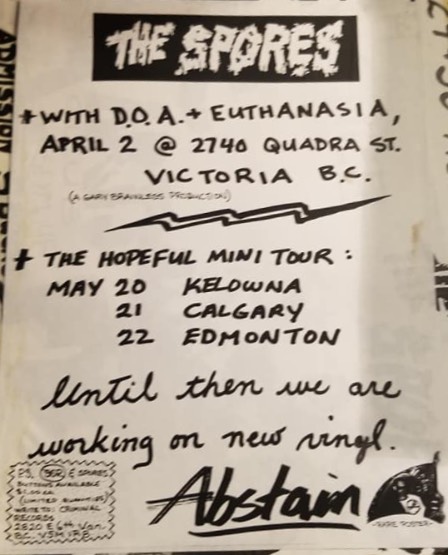 THE SPORES
+ WITH D.O.A. + EUTHANASIA,
APRIL 2 @ 2740 QUADRA ST.
VICTORIA B.C.
(A GARY BRAINLESS PRODUCTION)
+ THE HOPEFUL MINI TOUR :
MAY 20 KELOWNA
21 CALGARY
22 EDMONTON
Until then we are
working on new vinyl.
Abstain
P.S. & SPORES
BUTTONS AVAILABLE
$1.00 ea.
(LIMITED QUANTITIES)
WRITE TO: CRIMINAL
RECORDS
2820 E 6th Van.
B.C. V5M 1R8
-RARE POSTER-
ADMISSION